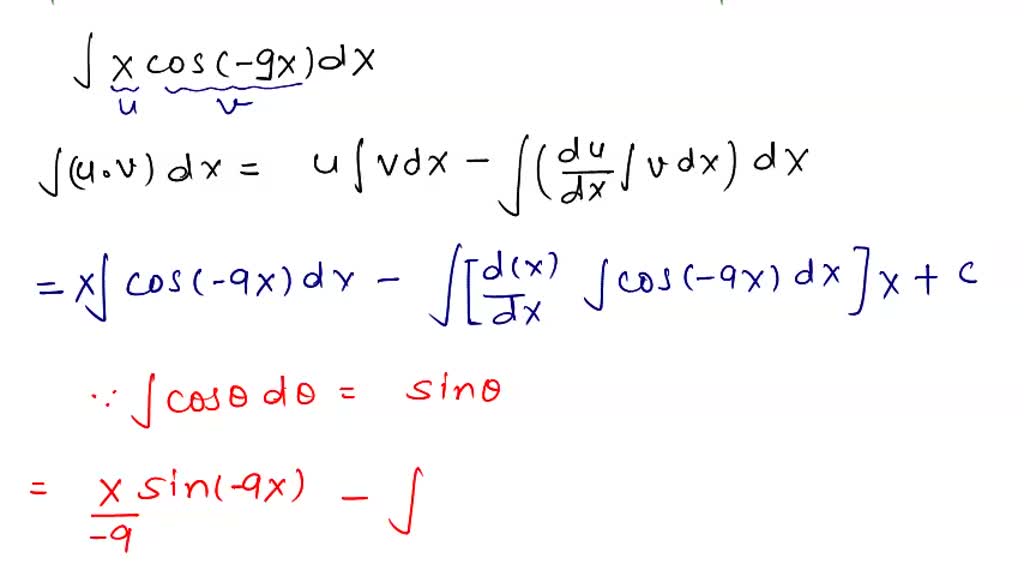 ∫ x cos(-9x) dx
u v
∫(u·v) dx = u ∫ v dx - ∫(du/dx ∫ v dx) dx
= x∫ cos(-9x) dx - ∫[d(x)/dx ∫ cos(-9x) dx] x + c
∵ ∫ cosθ dθ = sinθ
= x/-9 sin(-9x) - ∫